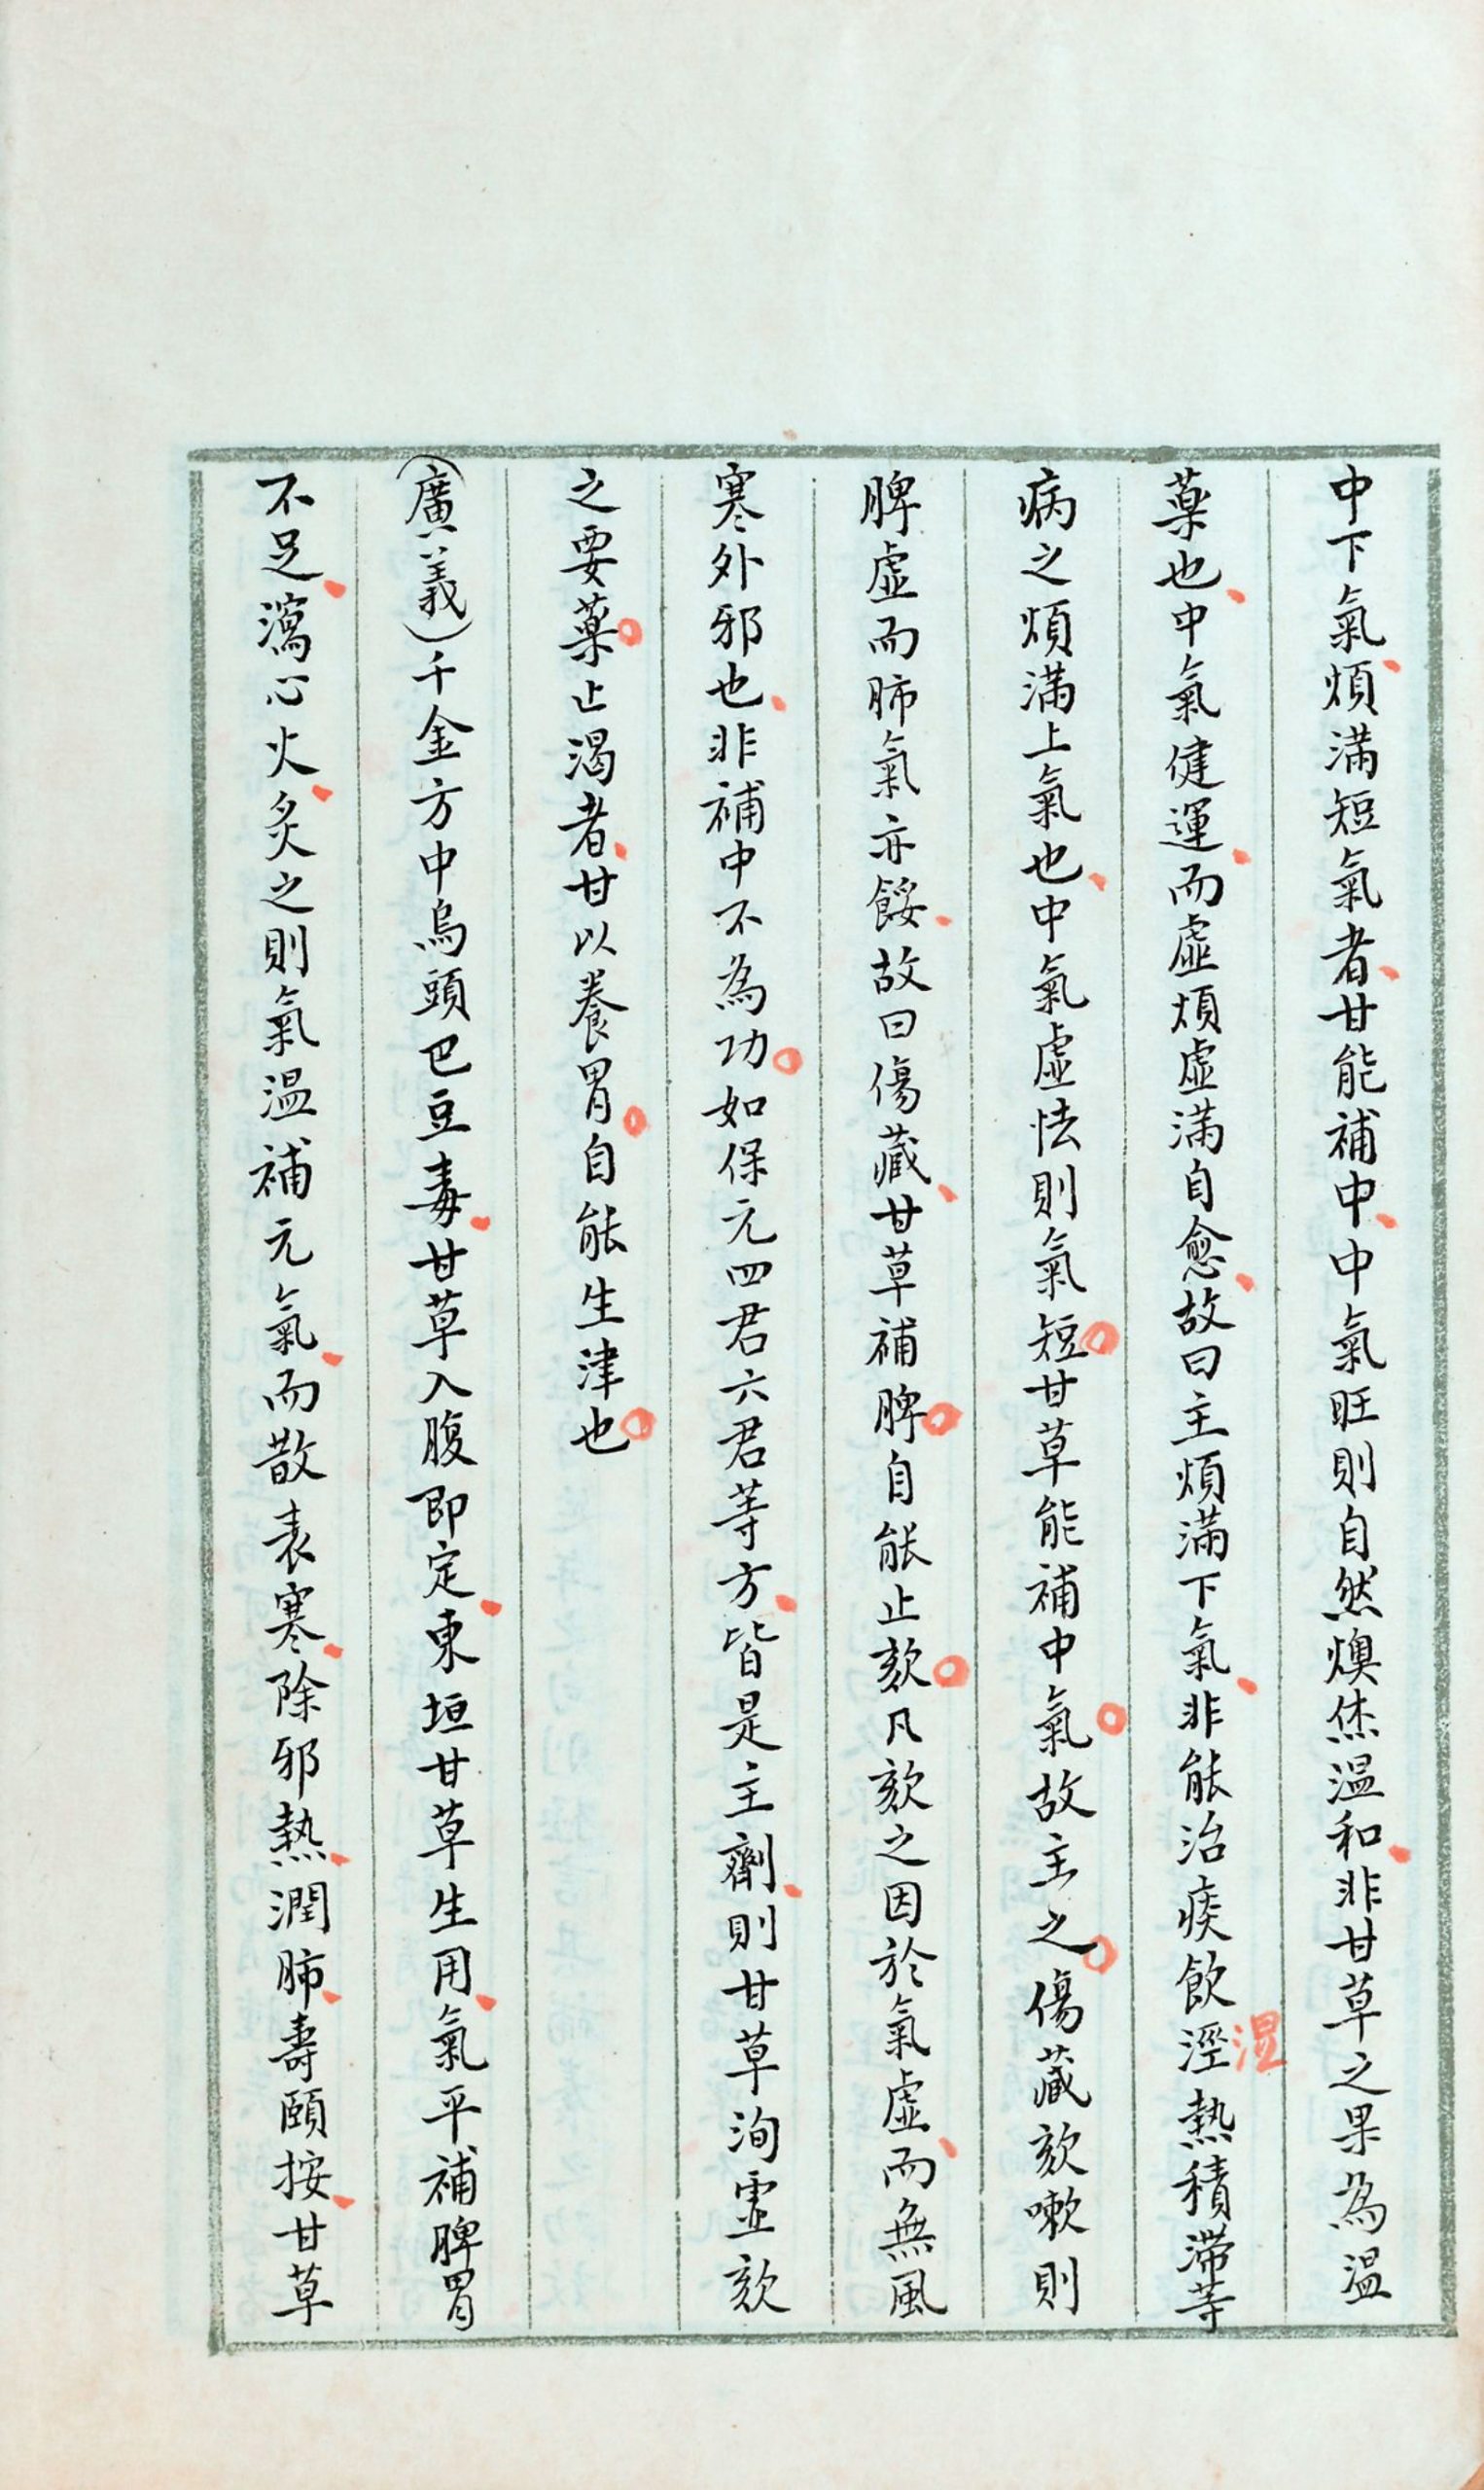 中下氣、煩滿短氣者、甘能補中、中氣旺則自然燠烋温和、非甘草之果為温
藥也、中氣健運、而虛煩虛滿自愈、故曰主煩滿下氣、非能治痰飲溼熱積滯等
湿
病之煩滿上氣也、中氣虛怯則氣短。甘草能補中氣。故主之。傷藏欬嗽則
脾虛而肺氣亦餒、故曰傷藏、甘草補脾。自能止欬。凡欬之因於氣虛、而無風
寒外邪也、非補中不為功。如保元四君六君等方、皆是主劑、則甘草洵虛欬
之要藥。止渴者、甘以養胃。自能生津也。
(廣義)千金方中烏頭巴豆毒、甘草入腹即定、東垣甘草生用、氣平補脾胃
不足、瀉心火、炙之則氣温補元氣、而散表寒、除邪熱、潤肺、壽頤按、甘草